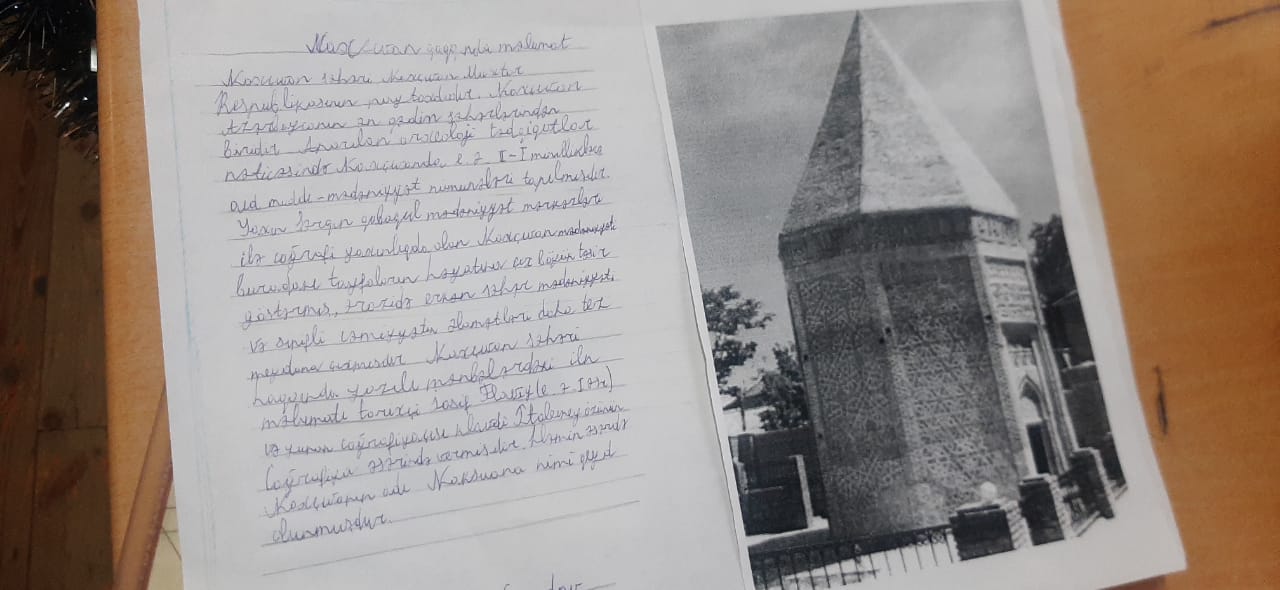 Naxçıvan haqqında məlumat
Naxçıvan şəhəri Naxçıvan Muxtar
Respublikasının paytaxtıdır. Naxçıvan
Azərbaycanın ən qədim şəhərlərindən
biridir Aparılan arxeoloji tədqiqatlar
nəticəsində Naxçıvanda e. ə II-I minilliklərə
aid maddi-mədəniyyət nümunələri tapılmışdır.
Yaxın Şərqin qabaqcıl mədəniyyət mərkəzləri
ilə coğrafi yaxınlıqda olan Naxçıvan mədəniyyəti
buradakı tayfaların həyatına təsir
göstərmiş, ərazidə erkən şəhər mədəniyyəti
və sinifli cəmiyyətin əlamətləri daha tez
meydana çıxmışdır Naxçıvan şəhəri
haqqında yazılı mənbələrdəki ilk
məlumatı tarixçi İosif Flavi e. ə I əsr)
və yunan coğrafiyaşısı Klavdi Ptolemey özünün
Coğrafiya əsərində vermişdir. Həmin əsərdə
Naxçıvanın adı Naksuana kimi qeyd
olunmuşdur.